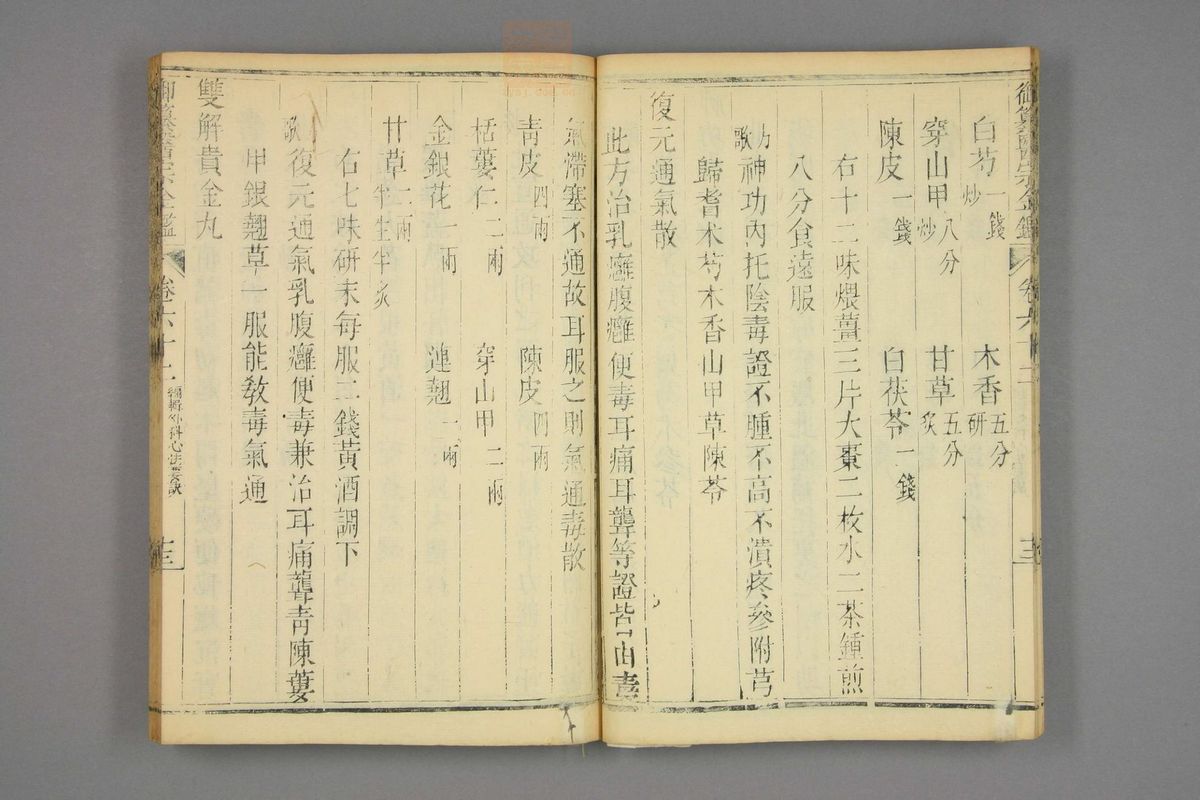 白芍一錢炒 木香五分研
穿山甲八分炒 甘草五分炙
陳皮一錢 白茯苓一錢
右十二味煨薑三片大棗二枚水二茶鍾煎
八分食遠服
方歌神功內托陰毒證不腫不高不潰疼參附芎
歸耆朮芍木香山甲草陳苓
復元通氣散
此方治乳癰腹癰便毒耳痛耳聾等證皆由毒
氣滯塞不通故耳服之則氣通毒散
青皮四兩 陳皮四兩
栝蔞仁二兩 穿山甲二兩
金銀花一兩 連翹一兩
甘草二兩半生半炙
右七味研末每服二錢黃酒調下
歌復元通氣乳腹癰便毒兼治耳痛聾青陳蔞
甲銀翹草一服能教毒氣通
雙解貴金丸
御纂醫宗金鑑
卷六十二
編輯外科心法要訣